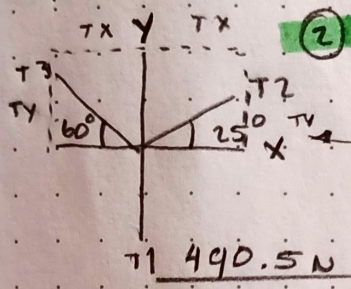 TX Y TX ②
T3 T2
TY 60° 25° X TY
T1 490.5 N